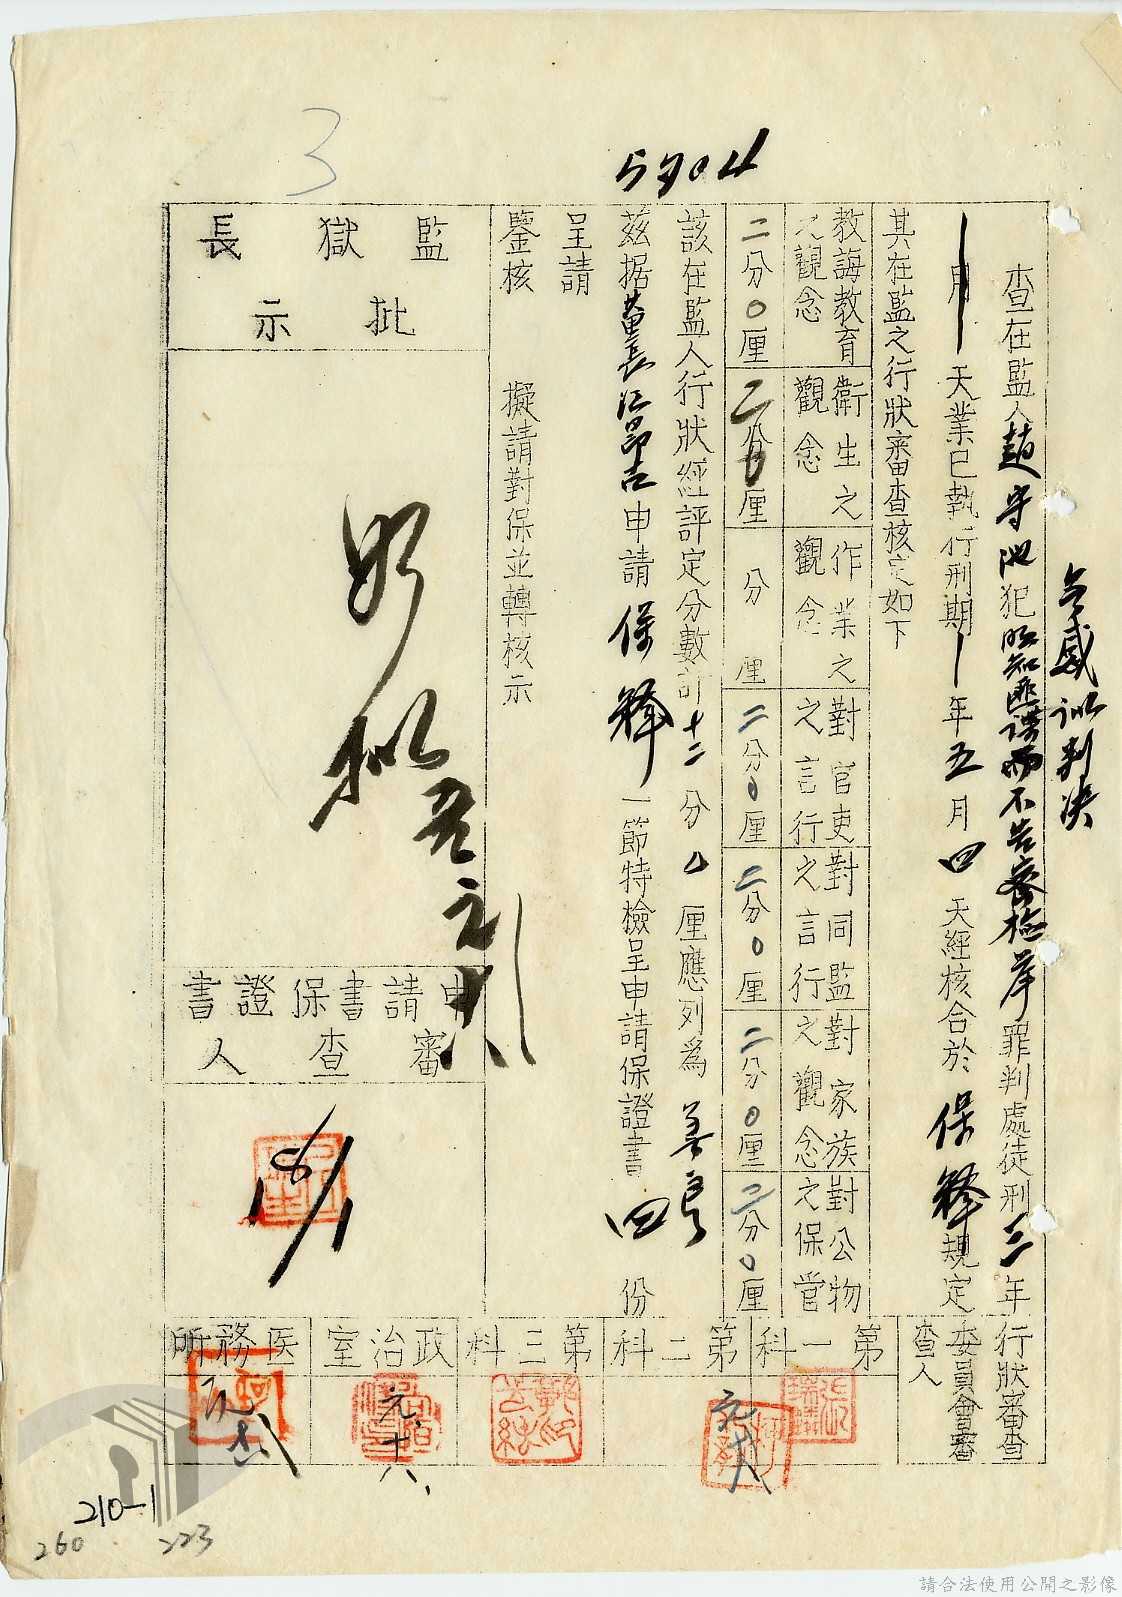 3
5904
無感訓判決
查在監人趙守池犯明知匪諜而不告密檢舉罪判處徒刑三年
月天業已執行刑期一年五月四天經核合於保釋規定
其在監之行狀審查核定如下
教誨教育之觀念
衛生之觀念
作業之觀念
對官吏之言行
對同監之言行
對家族之觀念
對公物之保管
二分0厘
二分0厘
分 厘
二分0厘
二分0厘
二分0厘
二分0厘
該在監人行狀經評定分數計十二分0厘應列為善良
茲据申請保釋一節特檢呈申請保證書四份
呈請
鑒核 擬請對保並轉核示
監獄長批示
如擬
元十八
申請書保證書審查人
18/1
行狀審查委員會審查人
第一科
第二科
第三科
政治室
医務所
元十八
元十六
210-1
260
223
請合法使用公開之影像